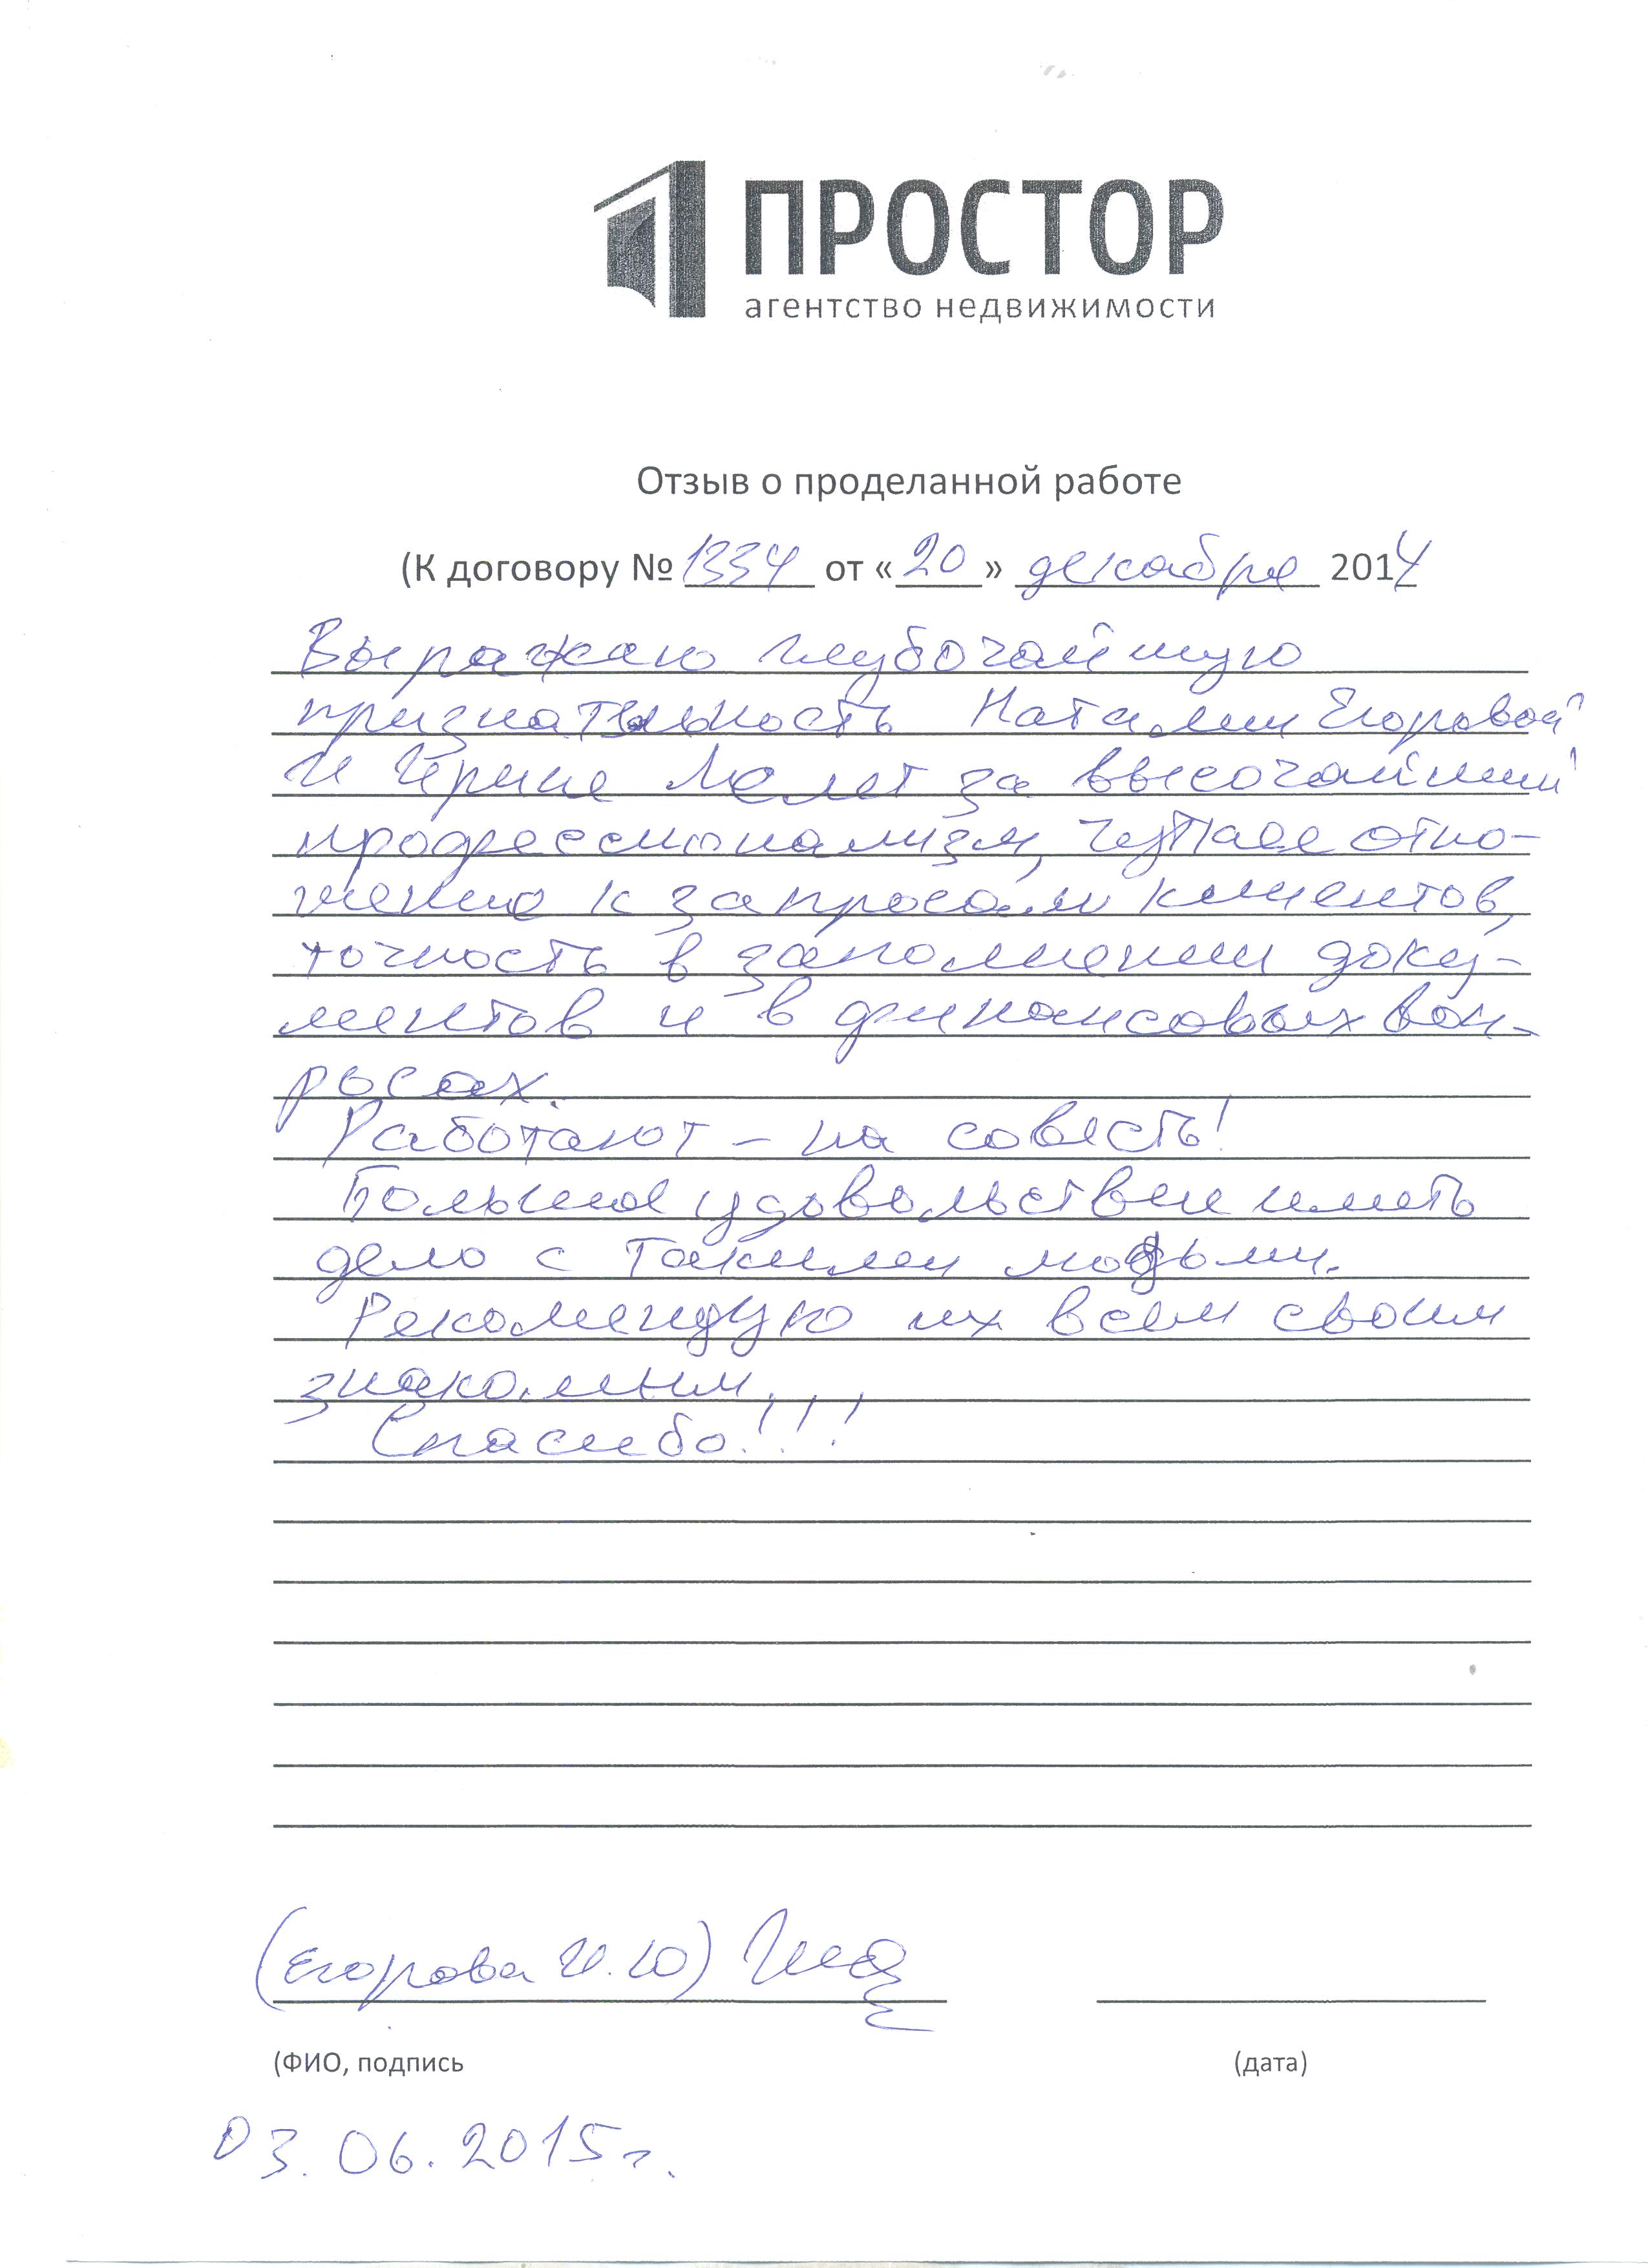 ПРОСТОР
агентство недвижимости
Отзыв о проделанной работе
(К договору № 1334 от «20» декабря 2014
Выражаю глубочайшую
признательность Наталии Егоровой
и Ирине за высочайший
профессионализм, чуткое отно-
шение к запросам клиентов,
точность в заполнении доку-
ментов и в финансовых воп-
росах.
Работают - на совесть!
Большое удовольствие иметь
дело с такими людьми.
Рекомендую их всем своим
знакомым.
Спасибо!!!
(Егорова И.Ю)
(ФИО, подпись
(дата)
03.06.2015г.